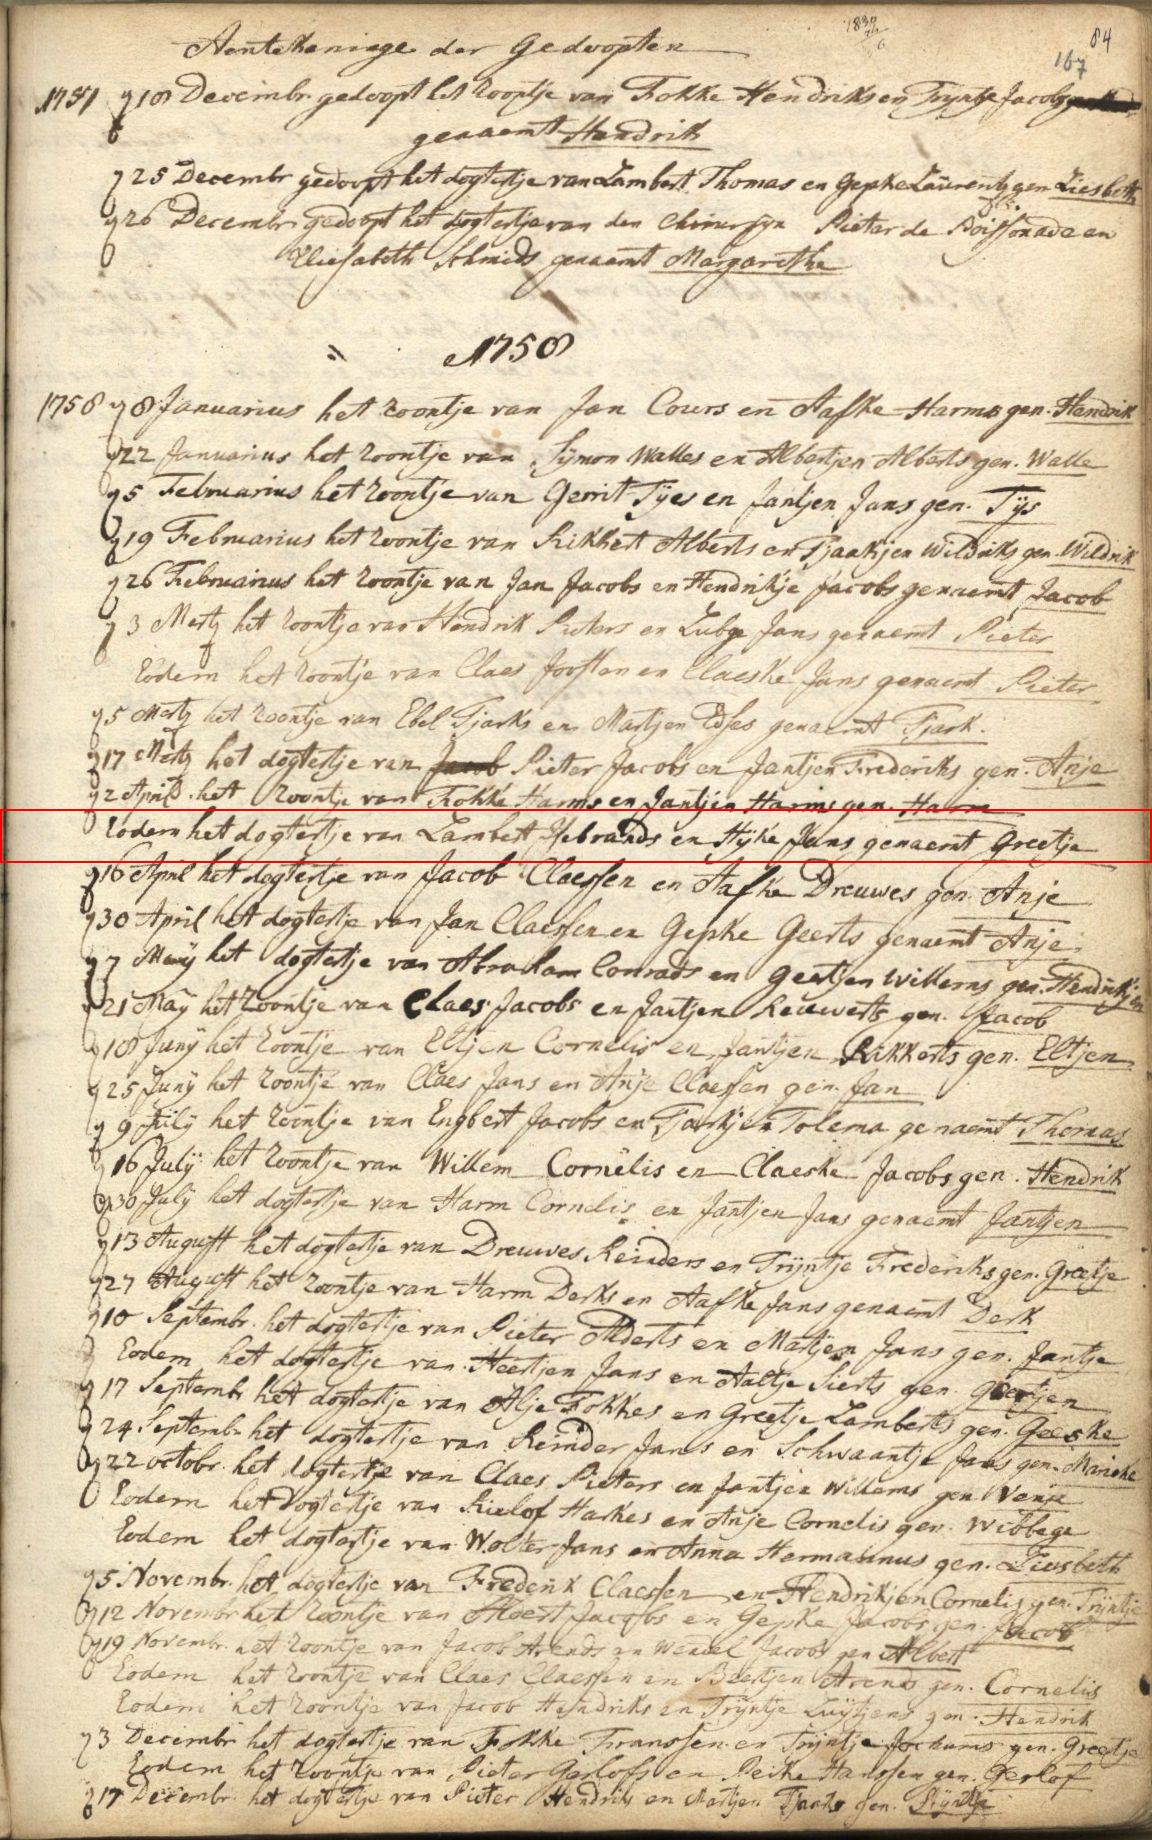 Aentekeninge der Gedoopten
1830
84
167
1757 d 18 Decembr. gedoopt het zoontje van Fokke Hendriks en Trijntje Jacobs
genaemt Hendrik
d 25 Decembr gedoopt het dogtertje van Lambert Thomas en Gepke Laurents gen Liesbeth
d 26 Decembr. gedoopt het dogtertje van den Chirurgijn Pieter de Boissonade en
Eliesabeth Schmids genaemt Margarethe
1758
1758 d 8 Januarius het zoontje van Jan Cours en Aafke Harms gen. Hendrik
d 22 Januarius het zoontje van Sijmon Walles en Albertjen Alberts gen. Walle
d 5 Februarius het zoontje van Gerrit Tijes en Jantjen Jans gen. Tijs
d 19 Februarius het zoontje van Rikkert Alberts en Tjaakjen Wildriks gen. Wildrik
d 26 Februarius het zoontje van Jan Jacobs en Hendrikje Jacobs genaemt Jacob
d 3 Mertz het zoontje van Hendrik Pieters en Lubge Jans genaemt Pieter
Eodem het zoontje van Claes Joosten en Claeske Jans genaemt Pieter
d 5 Mertz het zoontje van Ebel Tjarks en Martjen Edses genaemt Tjark.
d 17 Mertz het dogtertje van Jacob Pieter Jacobs en Jantjen Frederiks gen. Anje
d 2 April. het zoontje van Fokke Harms en Jantjen Harms gen. Harm
Eodem het dogtertje van Lambert Isebrands en Hijke Jans genaemt Greetje
d 16 April het dogtertje van Jacob Claessen en Aafke Dreuwes gen. Anje
d 30 April het dogtertje van Jan Claessen en Gepke Geerts genaemt Anje
d 7 Maij het dogtertje van Abraham Conrads en Geertjen Willems gen. Hendrikjen
d 21 Maij het zoontje van Claes Jacobs en Jantjen Reuwerts gen. Jacob
d 18 Junij het zoontje van Eltjen Cornelis en Jantjen Rikkerts gen. Eltjen
d 25 Junij het zoontje van Claes Jans en Anje Claessen gen. Jan
d 9 Julij het zoontje van Engbert Jacobs en Tjaakjen Tolema genaemt Thomas
d 16 Julij het zoontje van Willem Cornelis en Claeske Jacobs gen. Hendrik
d 30 Julij het dogtertje van Harm Cornelis en Jantjen Jans genaemt Jantjen
d 13 August het dogtertje van Dreuwes Reinders en Trijntje Frederiks gen. Greetje
d 27 August het zoontje van Harm Derks en Aafke Jans genaemt Derk
d 10 Septembr. het dogtertje van Pieter Alderts en Martjen Jans gen. Jantje
Eodem het dogtertje van Heertjen Jans en Aaltje Sierts gen. Geertjen
d 17 Septembr het dogtertje van Alje Fokkes en Greetje Lamberts gen. Geeske
d 24 Septembr het dogtertje van Reinder Jans en Schwaantje Jans gen. Marieke
d 22 octobr. het dogtertje van Claes Pieters en Jantjen Willems gen. Venje
Eodem het dogtertje van Rielof Harkes en Anje Cornelis gen. Wibbege
Eodem het dogtertje van Wolter Jans en Anna Hermannus gen. Liesbeth
d 5 Novembr. het dogtertje van Frederik Claessen en Hendrikjen Cornelis gen. Trijntje
d 12 Novembr het zoontje van Allbert Jacobs en Gepke Jacobs gen. Jacob
d 19 Novembr. het zoontje van Jacob Arends en Wendel Jacobs gen Albert
Eodem het zoontje van Claes Claessen en Beertjen Arends gen. Cornelis
Eodem het zoontje van Jacob Hendriks en Trijntje Luitjens gen. Hendrik
d 3 Decembr het dogtertje van Fokke Franssen en Trijntje Jochums gen. Greetje
Eodem het zoontje van Pieter Gerlofs en Peike Hanssen gen. Gerlof
d 17 Decembr. het dogtertje van Pieter Hendriks en Martjen Tjarks gen. Trijntje